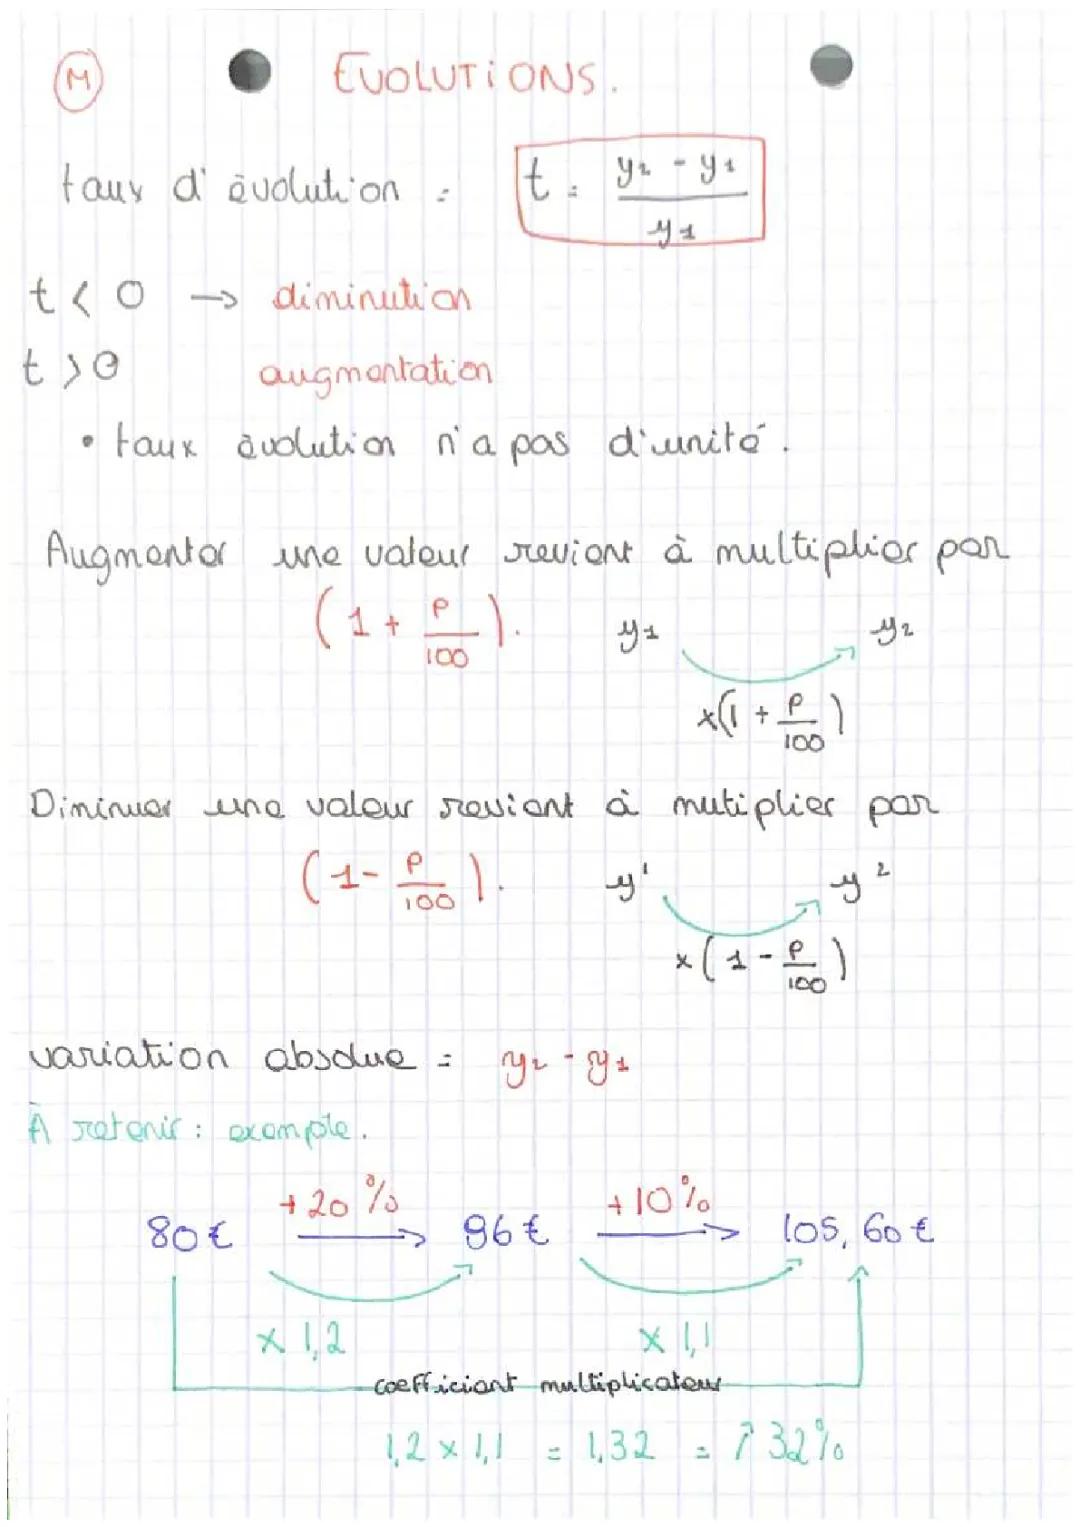 M
EVOLUTIONS.
taux d'évolution = t = (y₂ - y₁) / y₁
t < 0 → diminution
t > 0 augmentation
• taux évolution n'a pas d'unité.
Augmenter une valeur revient à multiplier par
(1 + P/100). y₁ y₂
×(1 + P/100)
Diminuer une valeur revient à mutiplier par
(1 - P/100). y¹ y²
×(1 - P/100)
variation absolue = y₂ - y₁
À retenir : exemple.
+20% +10%
80€ → 96€ → 105,60€
× 1,2 × 1,1
coefficient multiplicateur
1,2 × 1,1 = 1,32 = ↗ 32%